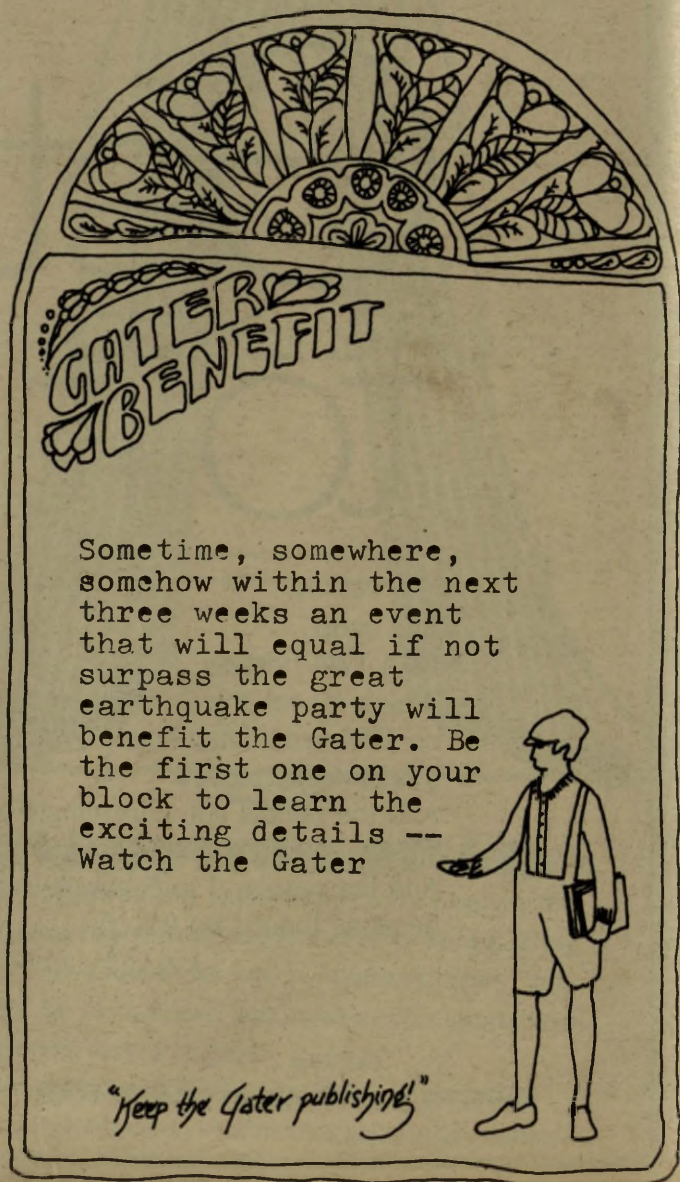 GATER
BENEFIT
Sometime, somewhere,
somehow within the next
three weeks an event
that will equal if not
surpass the great
earthquake party will
benefit the Gater. Be
the first one on your
block to learn the
exciting details --
Watch the Gater
"Keep the Gater publishing!"